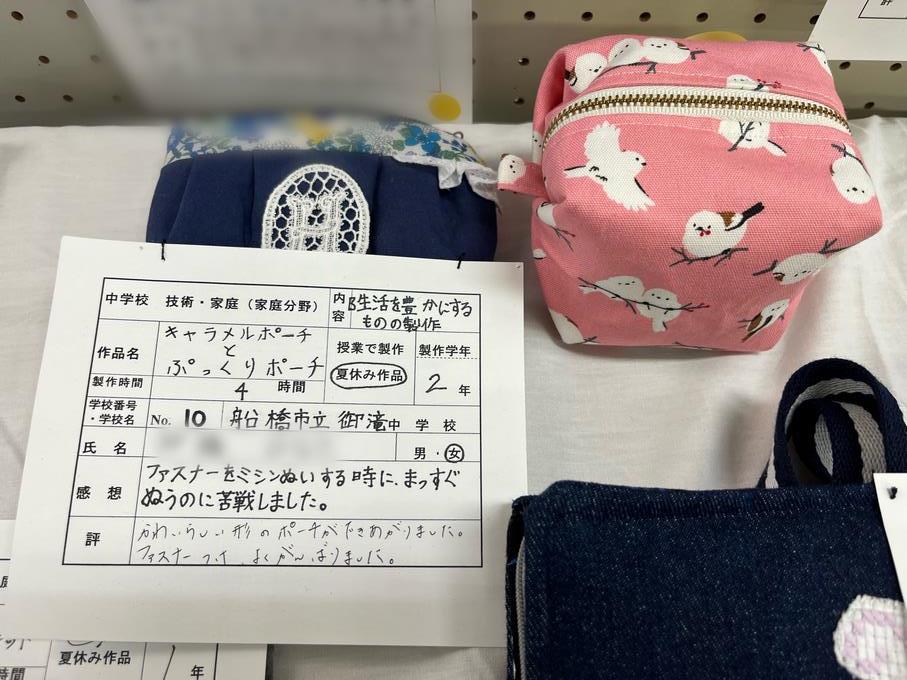 中学校 技術・家庭（家庭分野）
内容
B生活を豊かにする
ものの製作
作品名
キャラメルポーチ
と
ぷっくりポーチ
授業で製作
夏休み作品
製作学年
2年
製作時間
4 時間
学校番号
・学校名
No. 10 船橋市立御滝中 学 校
氏 名
男・女
感 想
ファスナーをミシンぬいする時に、まっすぐ
ぬうのに苦戦しました。
評
かわいらしい形のポーチができあがりました。
ファスナーつけ、よくがんばりました。
夏休み作品
年
時間
計